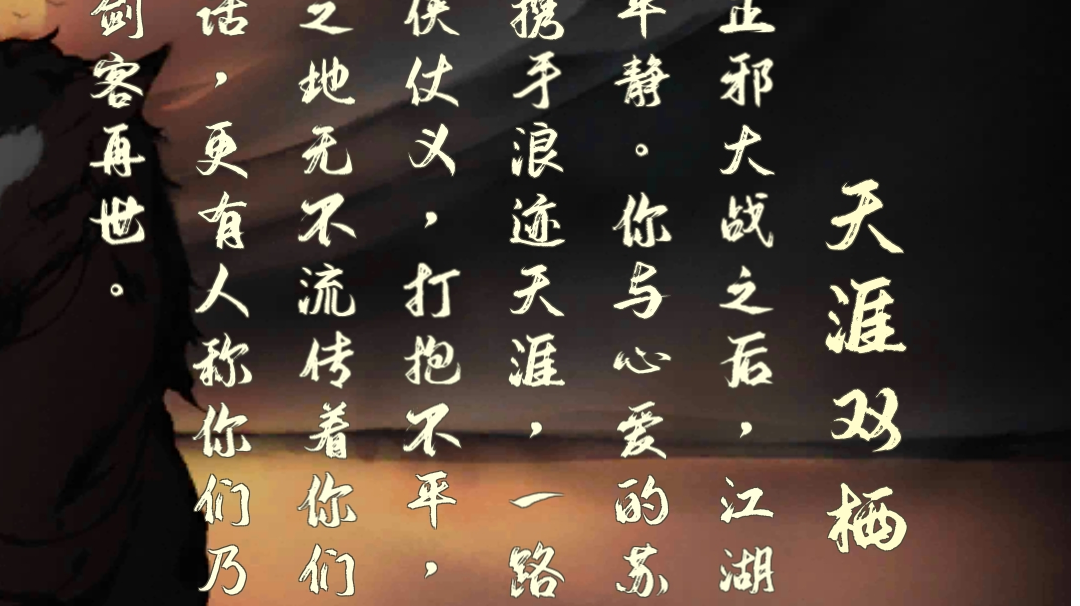 天涯双栖
正邪大战之后，江湖
平静。你与心爱的苏
携手浪迹天涯，一路
侠仗义，打抱不平，
之地无不流传着你们
话，更有人称你们乃
剑客再世。